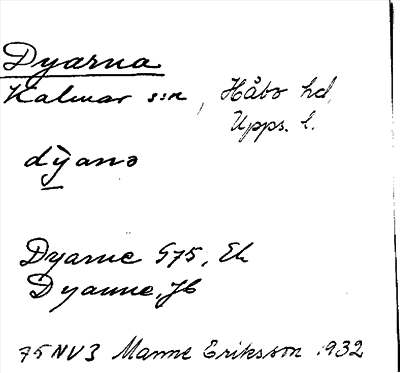 Dyarna
Kalmar s:n, Håbo hd,
Upps. l.
dỳanə
Dyarne G75, Ek
Dyarne, Jb
75NV3 Manne Eriksson 1932